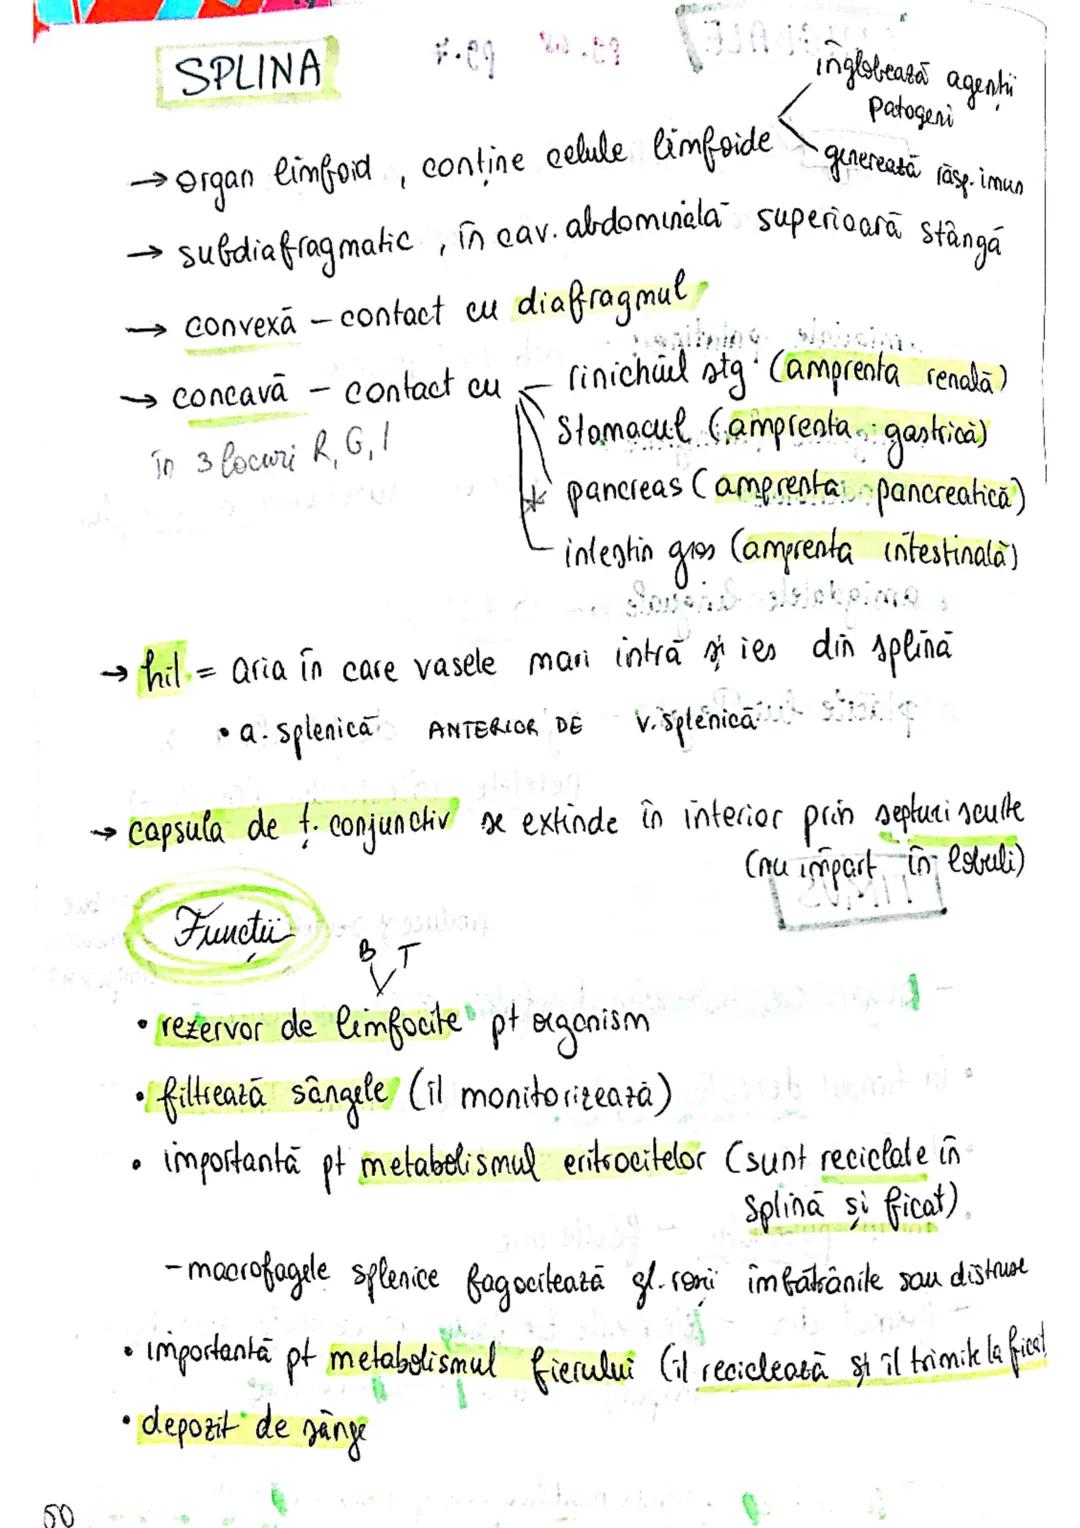 SPLINA
înglobează agenții
patogeni
→ organ limfoid, conține celule limfoide
generează răsp. imun
→ subdiafragmatic, în cav. abdominală superioară stângă
→ convexă – contact cu diafragmul
→ concavă – contact cu
în 3 locuri R, G, I
rinichiul stg. (amprenta renală)
stomacul (amprenta gastrică)
* pancreas (amprenta pancreatică)
intestin gros (amprenta intestinală)
→ hil = aria în care vasele mari intră și ies din splină
• a. splenică ANTERIOR DE v. splenică
→ capsula de ț. conjunctiv se extinde în interior prin septuri scurte
(nu împart în lobuli)
Funcții
B T
• rezervor de limfocite pt organism
• filtrează sângele (îl monitorizează)
• importantă pt metabolismul eritrocitelor (sunt reciclate în
splină și ficat)
- macrofagele splenice fagocitează gl. roșii îmbătrânite sau distruse
• importantă pt metabolismul fierului (îl reciclează și îl trimite la ficat
• depozit de sânge
50